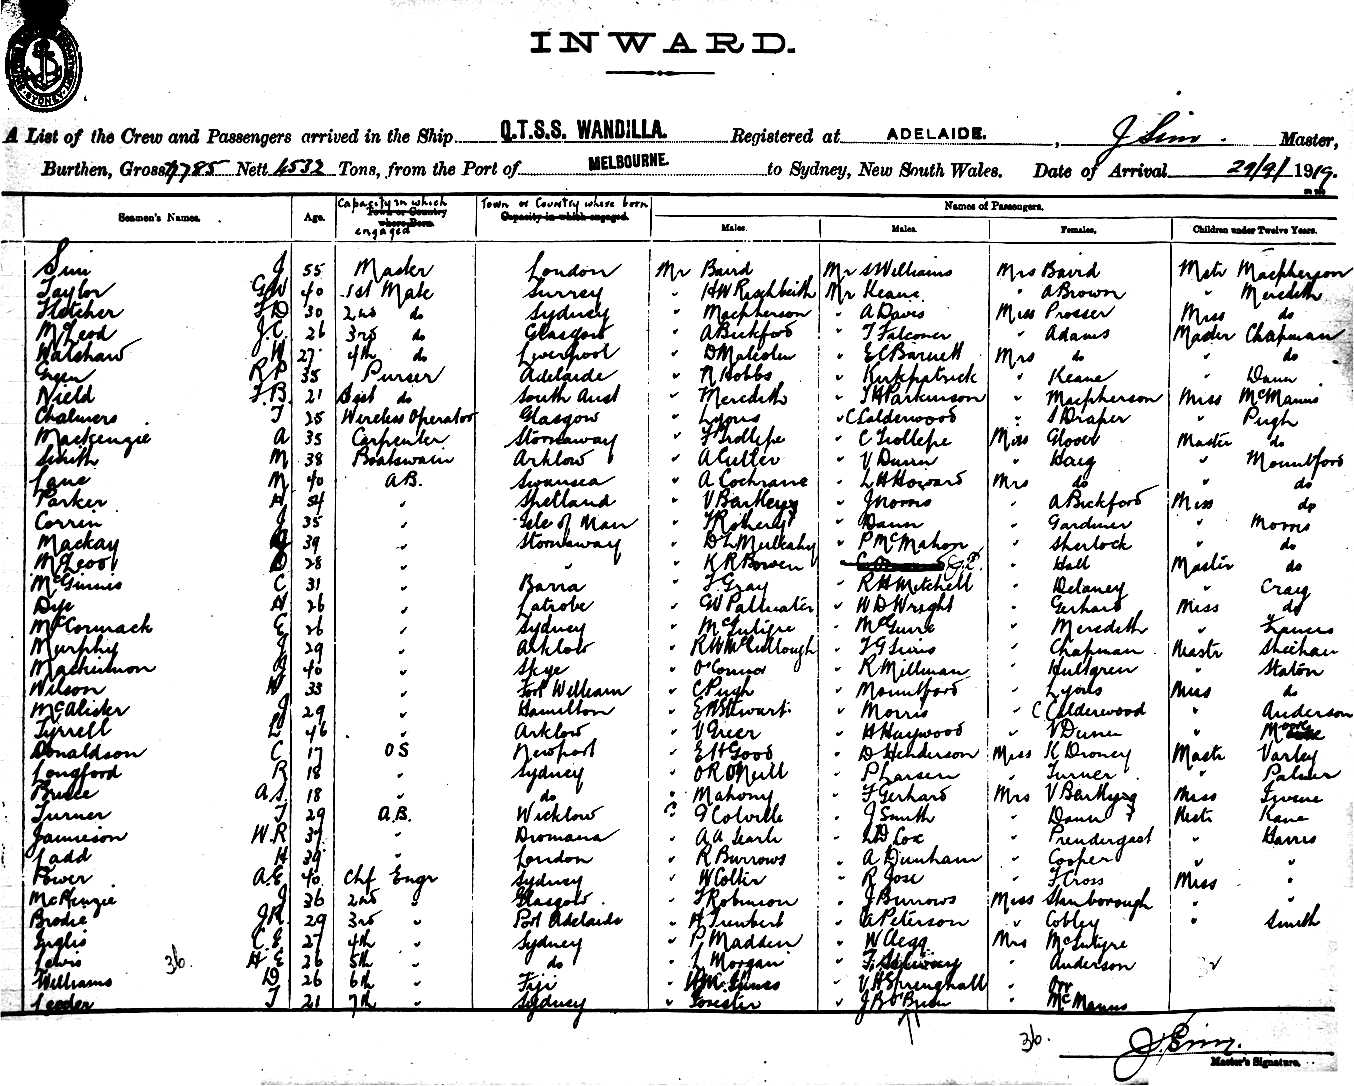 INWARD.
A List of the Crew and Passengers arrived in the Ship Q.T.S.S. WANDILLA. Registered at ADELAIDE. , J Sim. Master,
Burthen, Gross 7785 Nett 4532 Tons, from the Port of MELBOURNE. to Sydney, New South Wales. Date of Arrival 29/9/1919.
Seamen's Names. Age. Capacity in which engaged Town or Country where born Names of Passengers.
Town or Country where Born Capacity in which engaged. Males. Males. Females. Children under Twelve Years.
Sim J 55 Master London Mr Baird Mr S Williams Mrs Baird Mstr Macpherson
Taylor G W 40 1st Mate Surrey " H W Mr Keane " A Brown " Meredith
Fletcher F D 30 2nd do Sydney " Macpherson " A Davis Miss Prosser Miss do
McLeod J. C. 26 3rd do Glasgow " A Bickford " T Falconer " Adams Master Chapman
Walshaw W 27 4th do Liverpool " D Malcolm " E C Barnett Mrs do " do
R P 35 Purser Adelaide " R Hobbs " Kirkpatrick " Keane " Dann
Nield F. B. 21 Asst do South Aust " Meredith " T H Parkinson " Macpherson Miss McManns
Chalmers T 25 Wireless Operator Glasgow " Lyons " C Calderwood " S Draper " Pugh
Mackenzie A 35 Carpenter Stornaway " F Trollope " C Trollope Miss Glover Master do
Smith M 38 Boatswain Arklow " A Cutler " V Dunn " Haig " Mountford
Lane M 40 A.B. Swansea " A Cochrane " L H Howard Mrs do " do
Parker H 54 " Shetland " V Bartley " J Morris " A Bickford Miss do
Corrin J 35 " Isle of Man " T Rothery " Dann " Gardiner " Morris
Mackay 39 " Stornaway " D L Mulcahy " P McMahon " Sherlock " do
McLeod D 28 " " " K R Bowen G.P. " Hall Master do
McGinnis C 31 " Barra " F. Gray " R H Mitchell " Delaney " Craig
Dye H 26 " Latrobe " G W Pallwater " W D Wright " Gerhard Miss do
McCormack E 26 " Sydney " McIntyre " McGuire " Meredith " Francis
Murphy J 29 " Arklow " R W McCullough " F G Sims " Chapman Mastr Sheehan
Mackinnon 40 " Skye " O'Connor " R Millman " Hultgren " Staton
Wilson W 33 " Fort William " C Pugh " Mountford " Lyons Miss do
McAlister J 29 " Hamilton " E H Stewart " Morris " C Calderwood " Anderson
Tyrrell 46 " Arklow " V Greer " H Haywood " V Dunn "
Donaldson C 17 O S Newport " E H Good " D Henderson Miss K Droney Mastr Varley
Longford R 18 " Sydney " O R O'Neill " P Larsen " Turner " Palmer
Bruce A. S. 18 " do " Mahony " F Gerhard Mrs V Bartley Miss
Turner T 29 A.B. Wicklow " G Colville " J Smith " Dann Mstr Kane
Jamieson W. R 37 " Dromana " A A Searle " Cox " Prendergast " Harris
Ladd H 39 " London " R Burrows " A Dunham " Cooper " "
Power A. E 40 Chf Engr Sydney " W Collir " R Jose " F Cross Miss "
McKenzie J 36 2nd " Glasgow " F Robinson " J Burrows Miss Stanborough " "
Brodie J. R 29 3rd " Port Adelaide " H Trembert " Peterson " Cobley " Smith
Inglis C. E 27 4th " Sydney " P Madden " W Clegg Mrs McIntyre
Lewis 36. H E 26 5th " do " L Morgan " " Anderson
Williams D 26 6th " Fiji " " V H Springhall "
Leeder T 21 7th " Sydney " Forester " J B O'Brien " McManns
36. J. Sim.
Master's Signature.